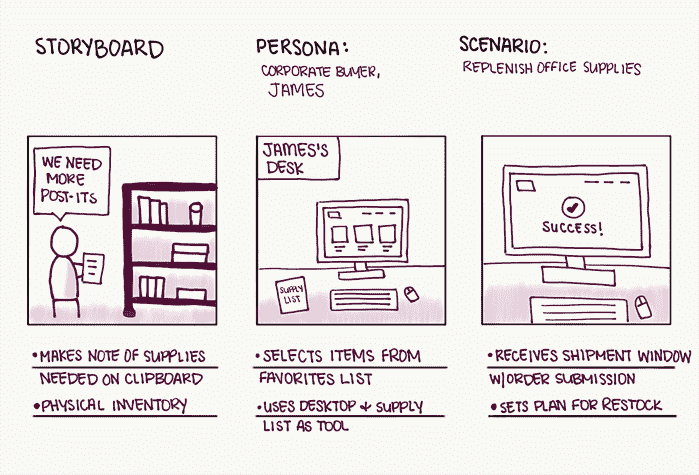 STORYBOARD
PERSONA:
CORPORATE BUYER,
JAMES
SCENARIO:
REPLENISH OFFICE SUPPLIES
WE NEED
MORE
POST-ITS
JAMES'S
DESK
SUPPLY
LIST
SUCCESS!
•MAKES NOTE OF SUPPLIES
NEEDED ON CLIPBOARD
•PHYSICAL INVENTORY
•SELECTS ITEMS FROM
FAVORITES LIST
•USES DESKTOP + SUPPLY
LIST AS TOOL
•RECEIVES SHIPMENT WINDOW
W/ORDER SUBMISSION
•SETS PLAN FOR RESTOCK